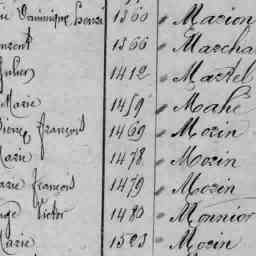 Dominique Henri 1300 " Marion
1366 " Marcha
Julien 1412 " Martel
Marie 1459 " Mahé
Pierre François 1469 " Morin
Marie 1478 " Morin
Marie François 1479 " Morin
Victor 1480 " Monnior
Marie 1523 " Morin